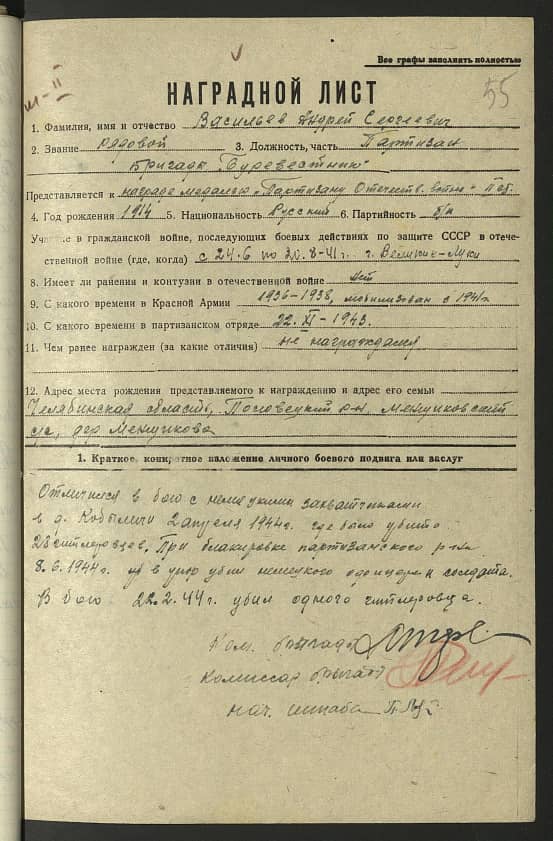 Все графы заполнять полностью
III-II
55
НАГРАДНОЙ ЛИСТ
1. Фамилия, имя и отчество Васильев Андрей Сергеевич
2. Звание рядовой 3. Должность, часть Партизан
бригады "Буревестник"
Представляется к награде медалью "Партизану Отечеств. войны" II ст.
4. Год рождения 1914 5. Национальность Русский 6. Партийность б/п
Участие в гражданской войне, последующих боевых действиях по защите СССР в отече-
ственной войне (где, когда) с 24.6 по 20.8-41г. г. Великие-Луки
8. Имеет ли ранения и контузии в отечественной войне нет
9. С какого времени в Красной Армии 1936-1938, мобилизован с 1941г
10. С какого времени в партизанском отряде 22.XI-1943.
11. Чем ранее награжден (за какие отличия) не награждался
12. Адрес места рождения представляемого к награждению и адрес его семьи
Челябинская область, р-н, Менщиковский
с/с, дер Менщикова
1. Краткое, конкретное изложение личного боевого подвига или заслуг
Отличился в бою с немецкими захватчиками
в д. Кобыличи 2 апреля 1944г. где было убито
28 гитлеровцев. При блакировке партизанского р-на
8.6.1944г. в упор убил немецкого офицера и солдата.
В бою 22.2.44г. убил одного гитлеровца.
Ком. бригады
Комиссар бригады
нач. штаба